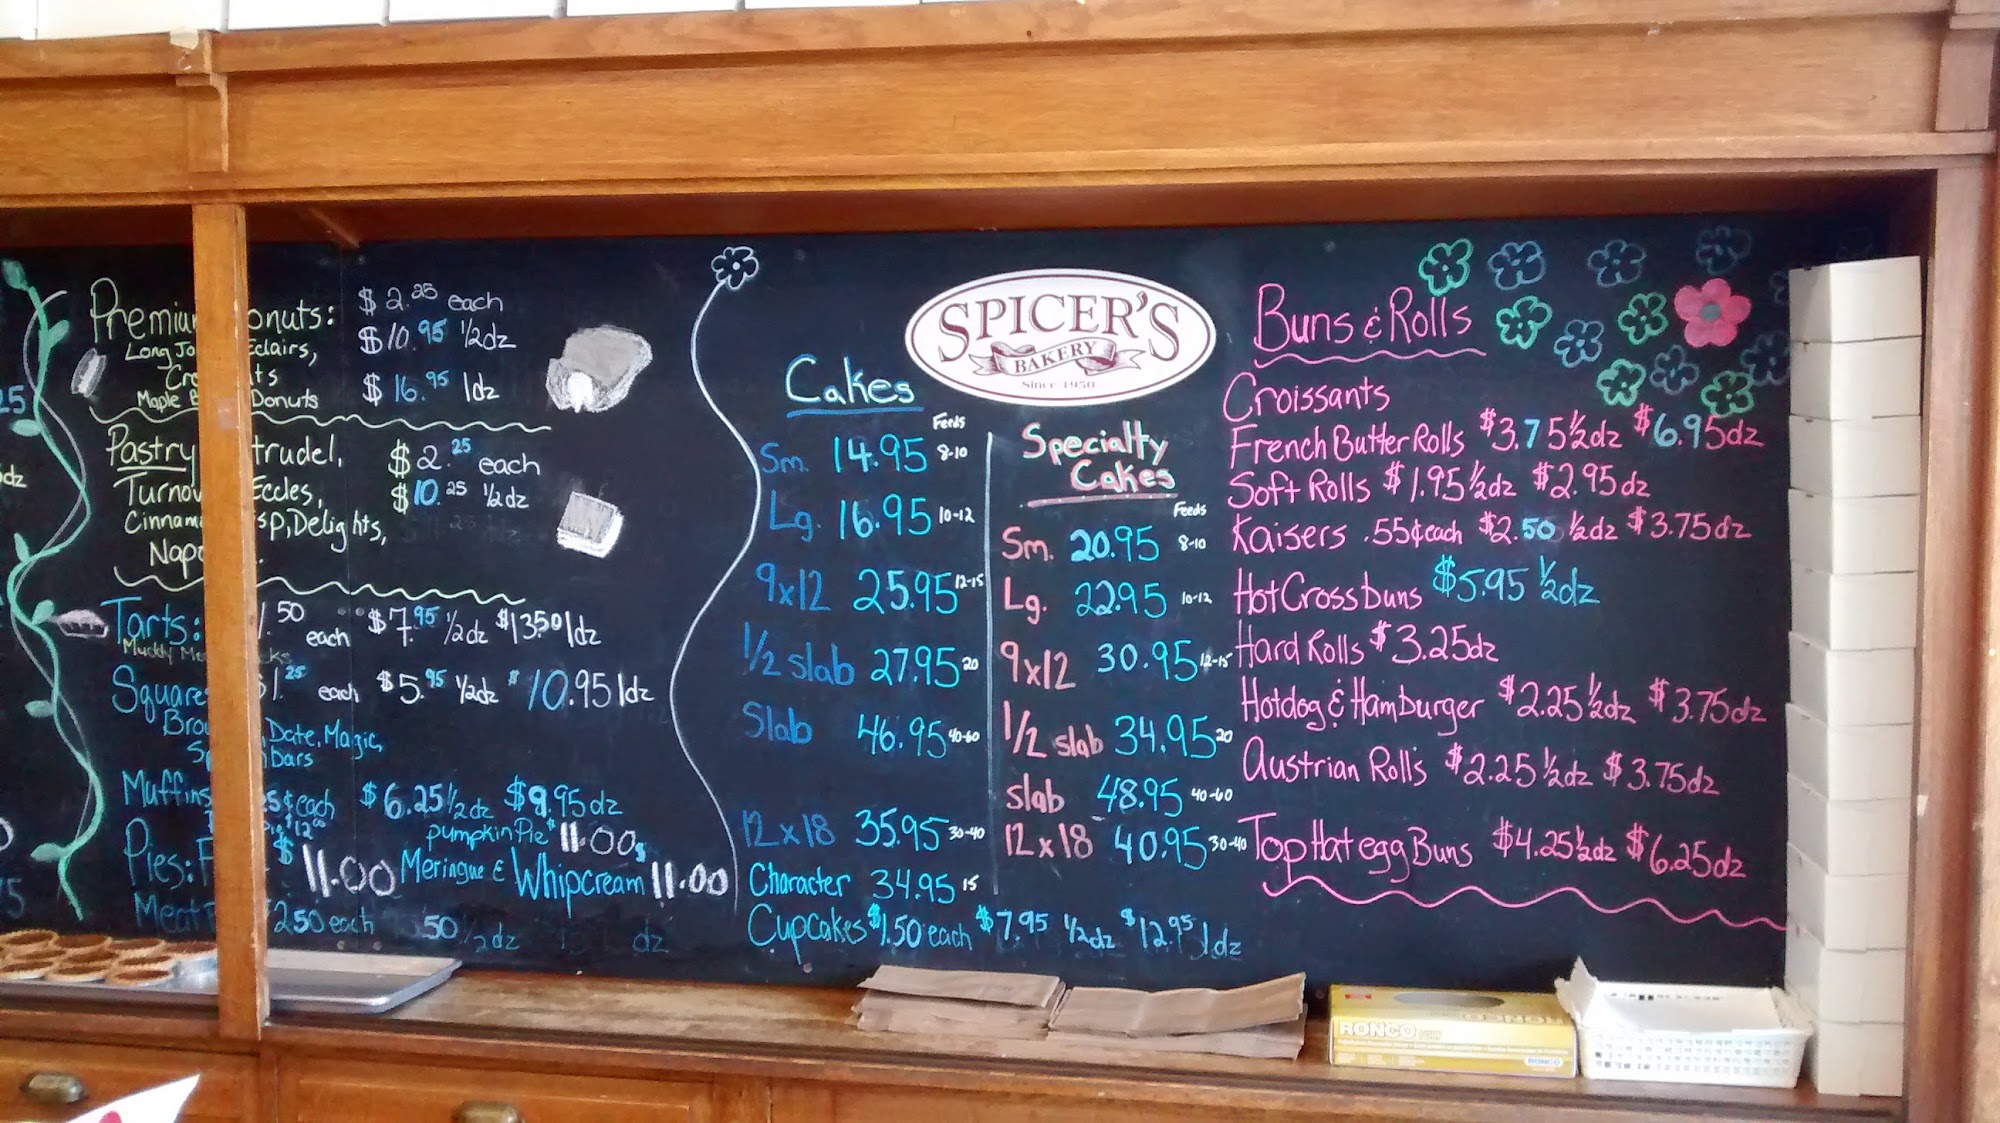 Premiu onuts: $2.25 each
$10.95 1/2dz
Long Jo Eclairs,
Cre ts
Maple B Donuts $16.95 1dz
Pastry trudel, $2.25 each
Turnov Eccles, $10.25 1/2dz
Cinnam sp, Delights,
Napo
Tarts: 1.50 each $7.95 1/2dz $13.50 1dz
Squares $1.25 each $5.95 1/2dz $10.95 1dz
Bro Date, Magic,
bars
Muffins each $6.25 1/2dz $9.95 dz
pumpkin Pie $11.00
Pies: F $11.00 Meringue & Whipcream 11.00
Meat 250 each 50 1/2dz dz
Cakes
Feeds
Sm. 14.95 8-10
Lg. 16.95 10-12
9x12 25.95 12-15
1/2 slab 27.95 20
Slab 46.95 40-60
12x18 35.95 30-40
Character 34.95 15
Cupcakes $1.50 each $7.95 1/2dz $12.95 1dz
SPICER'S
BAKERY
Since 1950
Specialty
Cakes
Feeds
Sm. 20.95 8-10
Lg. 22.95 10-12
9x12 30.95 12-15
1/2 slab 34.95 20
slab 48.95 40-60
12x18 40.95 30-40
Buns & Rolls
Croissants
French Butter Rolls $3.75 1/2dz $6.95dz
Soft Rolls $1.95 1/2dz $2.95dz
Kaisers .55¢ each $2.50 1/2dz $3.75dz
Hot Cross buns $5.95 1/2dz
Hard Rolls $3.25dz
Hotdog & Hamburger $2.25 1/2dz $3.75dz
Austrian Rolls $2.25 1/2dz $3.75dz
Top Hat egg Buns $4.25 1/2dz $6.25dz
RONCO
RONCO